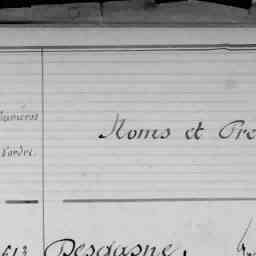 Numéros
d'ordre.
Noms et Pré
Desgagne,